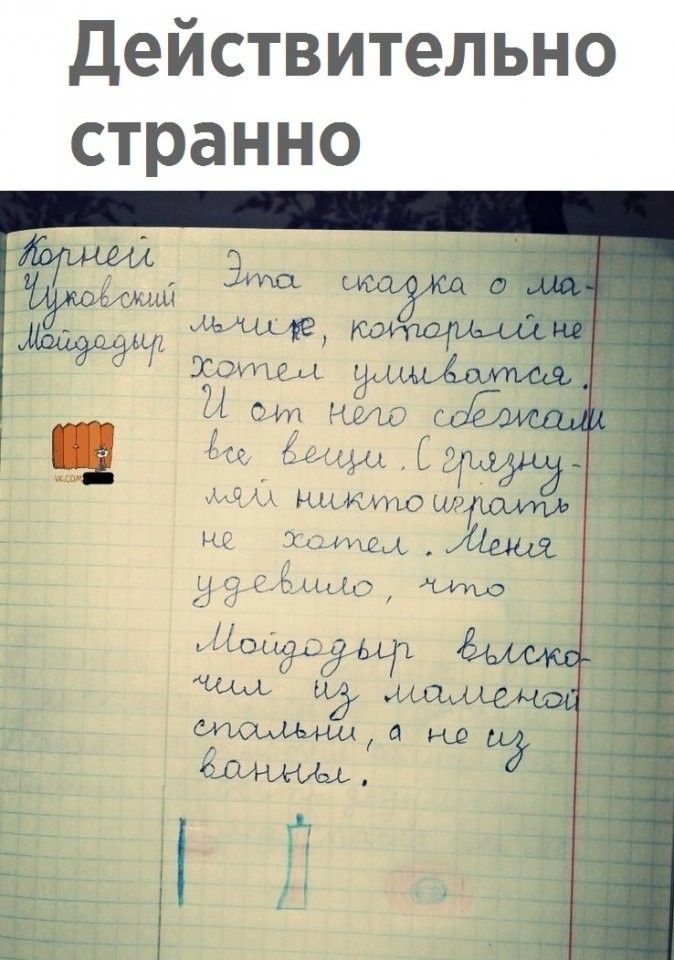 Действительно
странно
Корней
Чуковский
Мойдодыр
Эта сказка о ма-
льчике, который не
хотел умыватся.
И от него сбежали
все вещи. С грязну-
лей никто играть
не хотел. Меня
удевило, что
Мойдодыр выско-
чил из маменой
спальни, а не из
ванны.
VK.COM